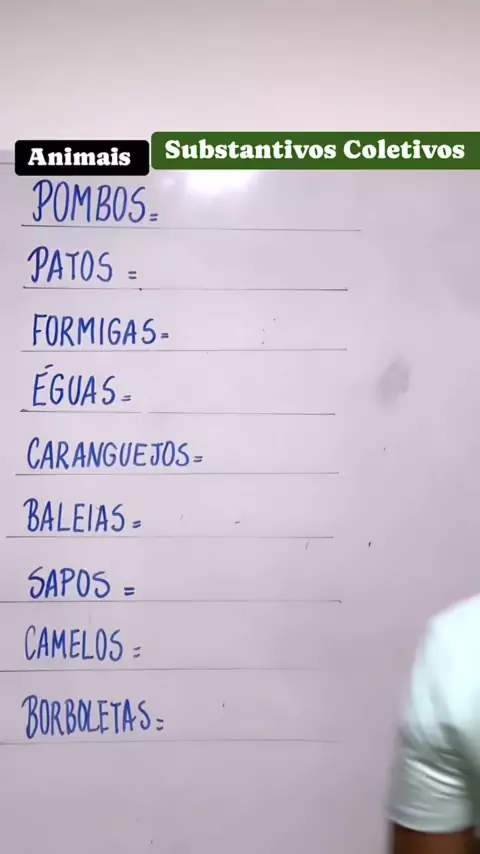 Animais
Substantivos Coletivos
POMBOS=
PATOS =
FORMIGAS=
ÉGUAS=
CARANGUEJOS=
BALEIAS=
SAPOS =
CAMELOS=
BORBOLETAS=